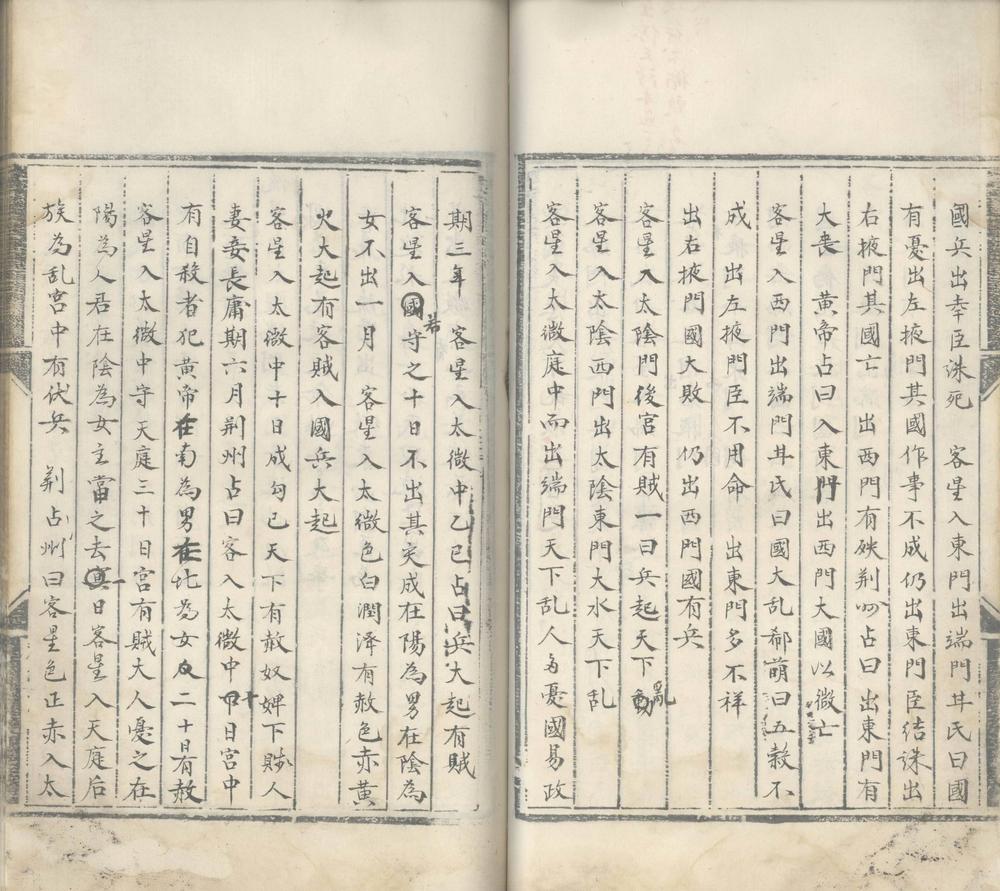 國兵出幸臣洙死　客星入東門出端門井氏曰國
有憂出左掖門其國作事不成仍出東門臣结誅出
右掖門其國亡　出西門有殃荆州占曰出東門有
大丧　黄帝占曰入東門出西門大國以微亡
客星入西門出端門井氏曰國大乱郗萌曰五榖不
成　出左掖門臣不用命　出東門多不祥
出右掖門國大敗　仍出西門國有兵
客星入太陰門後宫有賊一曰兵起天下亂
客星入太陰西門出太陰東門大水天下乱
客星入太微庭中而出端門天下乱人多憂國易政
期三年　客星入太微中乙巳占曰兵大起有賊
客星入國守之若十日不出其灾成在陽為男在陰為
女不出一月　客星入太微色白潤泽有赦色赤黄
火大起有客賊入國兵大起
客星入太微中十日成勾已天下有赦奴婢下賤人
妻妾長庸期六月荆州占曰客入太微中十日宫中
有自殺者犯黄帝在南為男在北為女二十日有赦
客星入太微中守天庭三十日宫有賊大人憂之在
陽為人君在陰為女主當之去一曰客星入天庭后
族為乱宫中有伏兵　荆占州曰客星色正赤入太